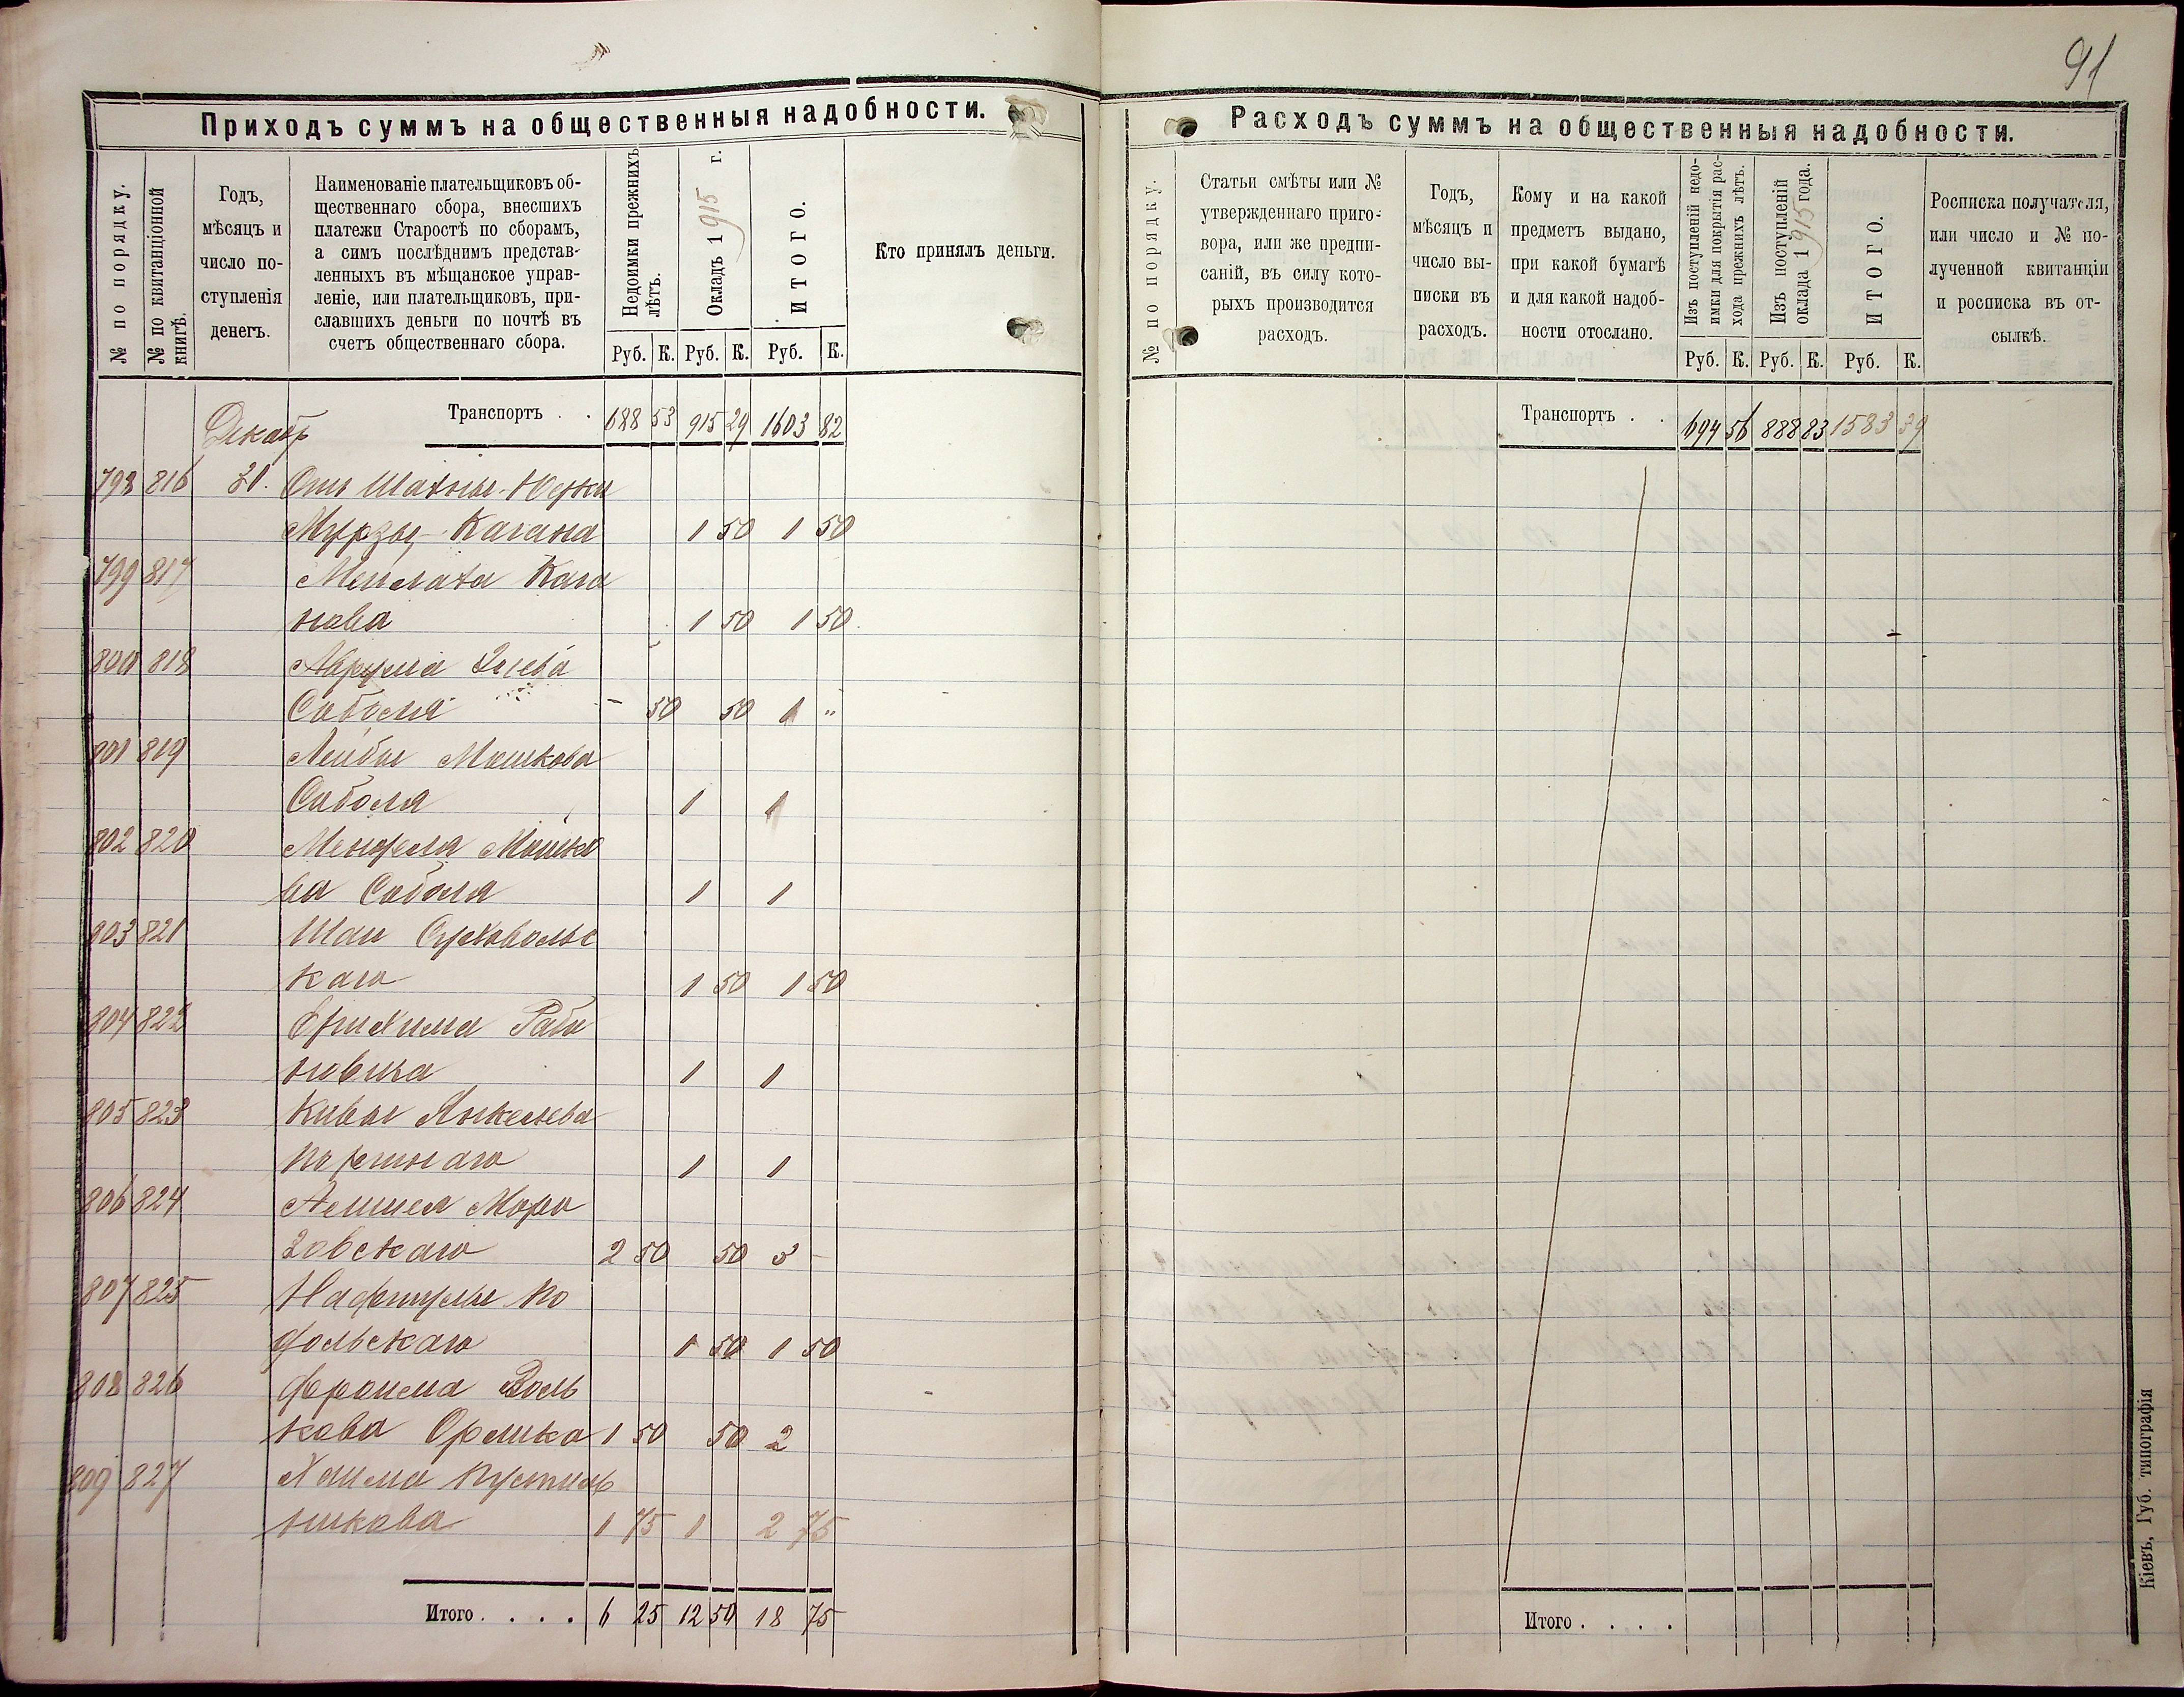 91
Приходъ суммъ на общественныя надобности.
№ по порядку.
№ по квитанціонной книгѣ.
Годъ,
мѣсяцъ и
число по-
ступленія
денегъ.
Наименованіе плательщиковъ об-
щественнаго сбора, внесшихъ
платежи Старостѣ по сборамъ,
а симъ послѣднимъ представ-
ленныхъ въ мѣщанское управ-
леніе, или плательщиковъ, при-
славшихъ деньги по почтѣ въ
счетъ общественнаго сбора.
Недоимки прежнихъ
лѣтъ.
Окладъ 1915 г.
ИТОГО.
Руб. К. Руб. К. Руб. К.
Кто принялъ деньги.
Транспортъ . . 688 53 915 29 1603 82
Декабр
798 816 21. Отъ Шахны-Юдки
Мурзы-Кагана 1 50 1 50
799 817 Кага
нова 1 50 1 50
800 818 Аврума
Соболя - 50 50 1 "
801 819 Лейбы Мошкова
Соболя 1 1
802 820 Менделя Мошко
ва Соболя 1 1
803 821 Шаи Суховольс
каго 1 50 1 50
804 822 Фришима Раби
новича 1 1
805 823 Кивы Янкелева
Портнаго 1 1
806 824 Моро
зовскаго 2 50 50 3 -
807 825 Нафтулы По
дольскаго 1 50 1 50
808 826 Фроима Воль
кова Орлика 1 50 50 2
809 827 Хаима Пустиль
никова 1 75 1 2 75
Итого . . . . 6 25 12 50 18 75
Расходъ суммъ на общественныя надобности.
№ по порядку.
Статьи смѣты или №
утвержденнаго приго-
вора, или же предпи-
саній, въ силу кото-
рыхъ производится
расходъ.
Годъ,
мѣсяцъ и
число вы-
писки въ
расходъ.
Кому и на какой
предметъ выдано,
при какой бумагѣ
и для какой надоб-
ности отослано.
Изъ поступленій недо-
имки для покрытія рас-
хода прежнихъ лѣтъ.
Изъ поступленій
оклада 1915 года.
ИТОГО.
Руб. К. Руб. К. Руб. К.
Росписка получателя,
или число и № по-
лученной квитанціи
и росписка въ от-
сылкѣ.
Транспортъ . . 694 56 888 83 1583 39
Итого . . . .
Кіевъ, Губ. типографія